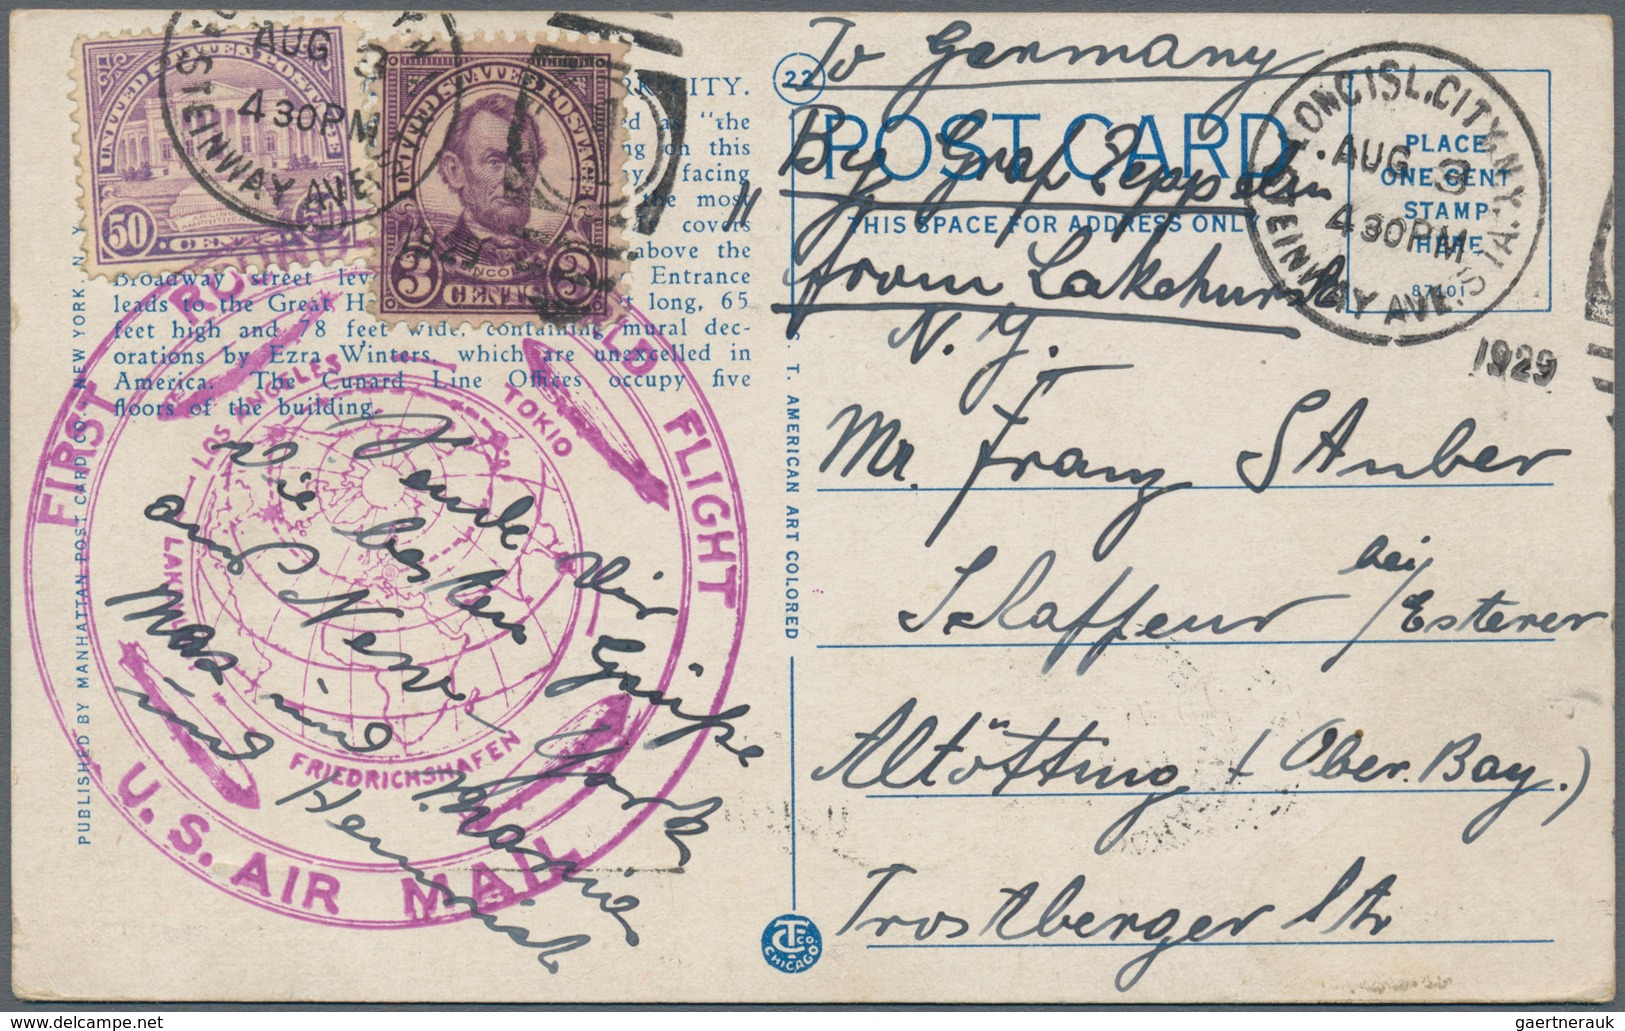 AUG 3
4 30 PM
STEINWAY AVE.
UNITED STATES POSTAGE
50 CENTS 50
UNITED STATES POSTAGE
LINCOLN
3 CENTS 3
1929
CITY.
as "the
on this
facing
the most
covers
above the
Broadway street
Entrance
leads to the Great
long, 65
feet high and 78 feet wide, containing mural dec-
orations by Ezra Winters, which are unexcelled in
America. The Cunard Line Offices occupy five
floors of the building.
PUBLISHED BY MANHATTAN POST CARD CO., NEW YORK, N. Y.
FIRST
FLIGHT
U.S. AIR MAIL
LOS ANGELES
TOKIO
FRIEDRICHSHAFEN
Dir
die besten
Grüsse
aus New York
Max und
und
22
To Germany
POST CARD
By Graf Zeppelin
THIS SPACE FOR ADDRESS ONLY
from Lakehurst
N.Y.
LONG ISL. CITY, N.Y.
AUG 3
4 30 PM
STEINWAY AVE. STA.
1929
PLACE
ONE CENT
STAMP
HERE
Mr. Franz Stuber
bei
Esterer
Altötting (Ober. Bay.)
Trostberger Str
C. T. AMERICAN ART COLORED
CHICAGO
gaertnerauk@delcampe